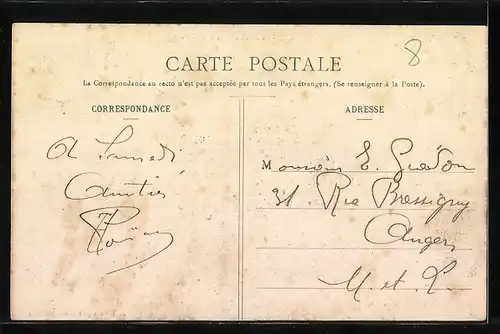 8
CARTE POSTALE
La Correspondance au recto n'est pas acceptée par tous les Pays étrangers. (Se renseigner à la Poste).
CORRESPONDANCE
A Samedi
Amitiés
ADRESSE
Monsieur E.
31 Rue Bressigny
Angers
M. et L.